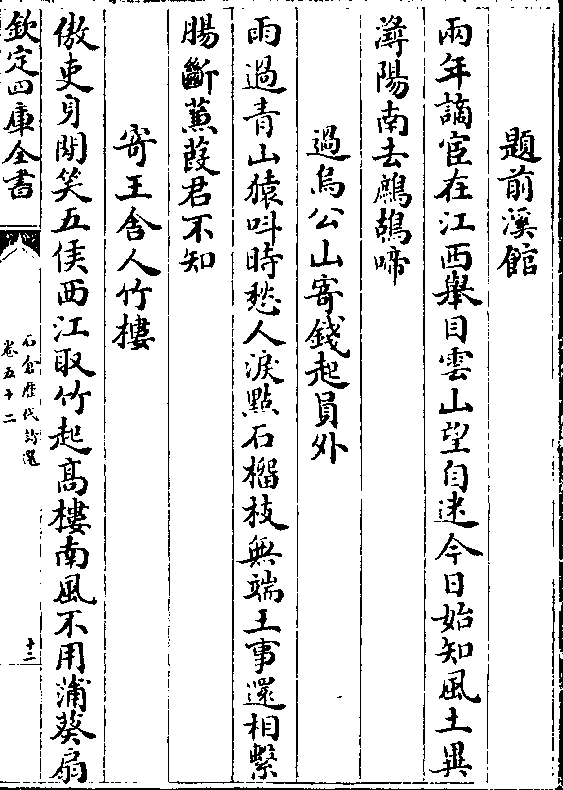 題前溪館
兩年謫宦在江西舉目雲山望自迷今日始知風土異
潯陽南去鷓鴣啼
過烏公山寄錢起員外
雨過青山猿叫時愁人淚點石榴枝無端王事還相繫
腸斷蒹葭君不知
寄王舍人竹樓
傲吏身閒笑五侯西江取竹起髙樓南風不用蒲葵扇
欽定四庫全書
石倉歷代詩選
卷五十二
十三